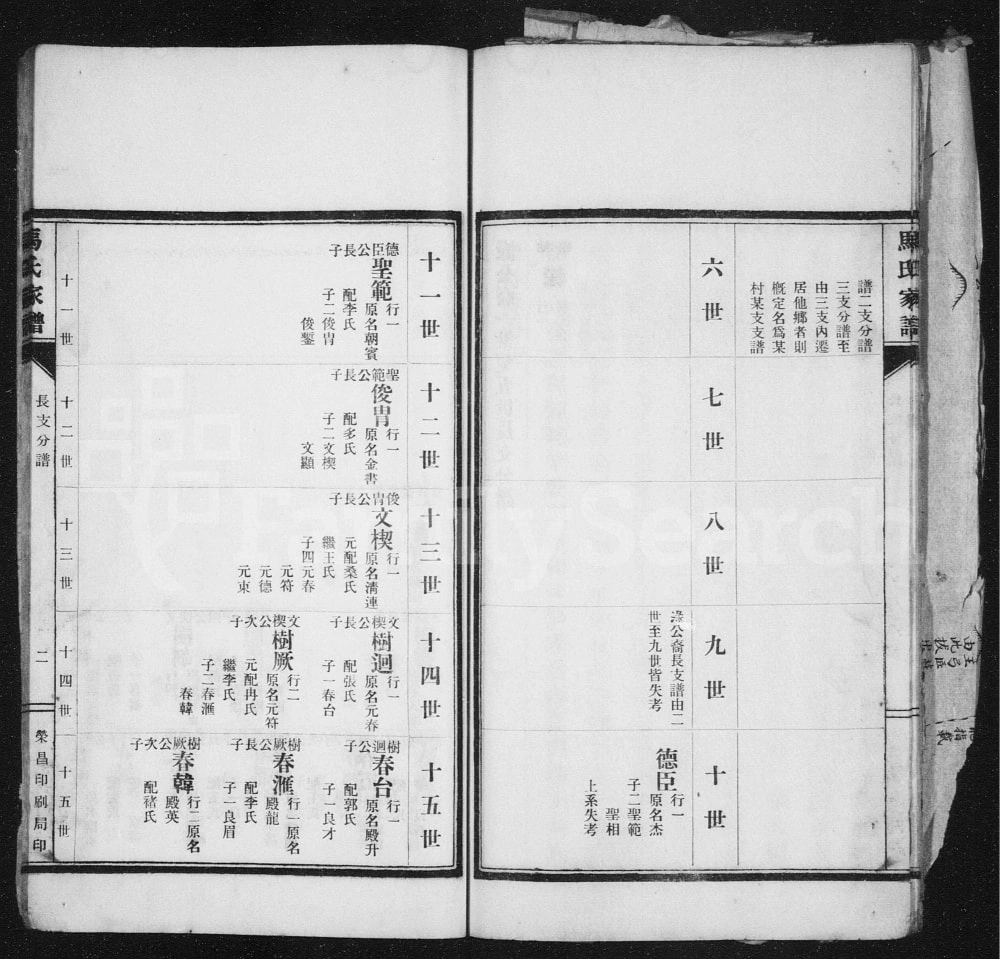 馬氏家譜
譜二支分譜
三支分譜至
由三支內遷
居他鄉者則
槪定名爲某
村某支支譜
六世
七世
八世
九世
公裔長支譜由二
世至九世皆失考
十世
德臣
行一
原名杰
子二聖範
聖相
上系失考
十一世
德臣公長子
聖範
行一
原名朝賓
配李氏
子二俊冑
俊鏨
十二世
聖範公長子
俊冑
行一
原名金書
配多氏
子二文楔
文顯
十三世
俊冑公長子
文楔
行一
原名淸連
元配桑氏
繼王氏
子四元春
元符
元德
元東
十四世
文楔公長子
樹迴
行一
原名元春
配張氏
子一春台
文楔公次子
樹厥
行二
原名元符
元配冉氏
繼李氏
子二春滙
春韓
十五世
樹迴公子
春台
行一
原名殿升
配郭氏
子一良才
樹厥公長子
春滙
行一原名
殿龍
配李氏
子一良眉
樹厥公次子
春韓
行二原名
殿英
配褚氏
馬氏家譜
長支分譜
二
榮昌印刷局印
十一世
十二世
十三世
十四世
十五世
FamilySearch